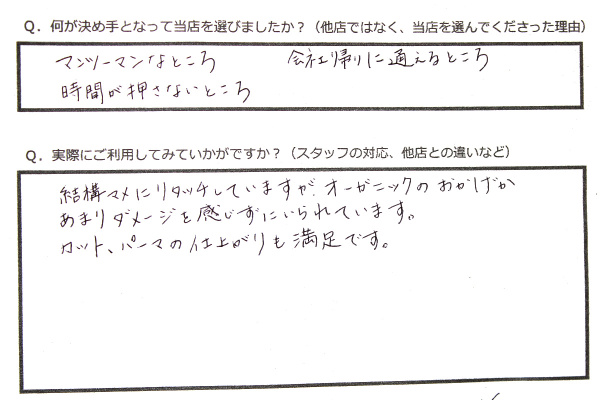 Q．何が決め手となって当店を選びましたか？（他店ではなく、当店を選んでくださった理由）
マンツーマンなところ　会社帰りに通えるところ
時間が押さないところ
Q．実際にご利用してみていかがですか？（スタッフの対応、他店との違いなど）
結構マメにリタッチしていますが、オーガニックのおかげか
あまりダメージを感じずにいられています。
カット、パーマの仕上がりも満足です。